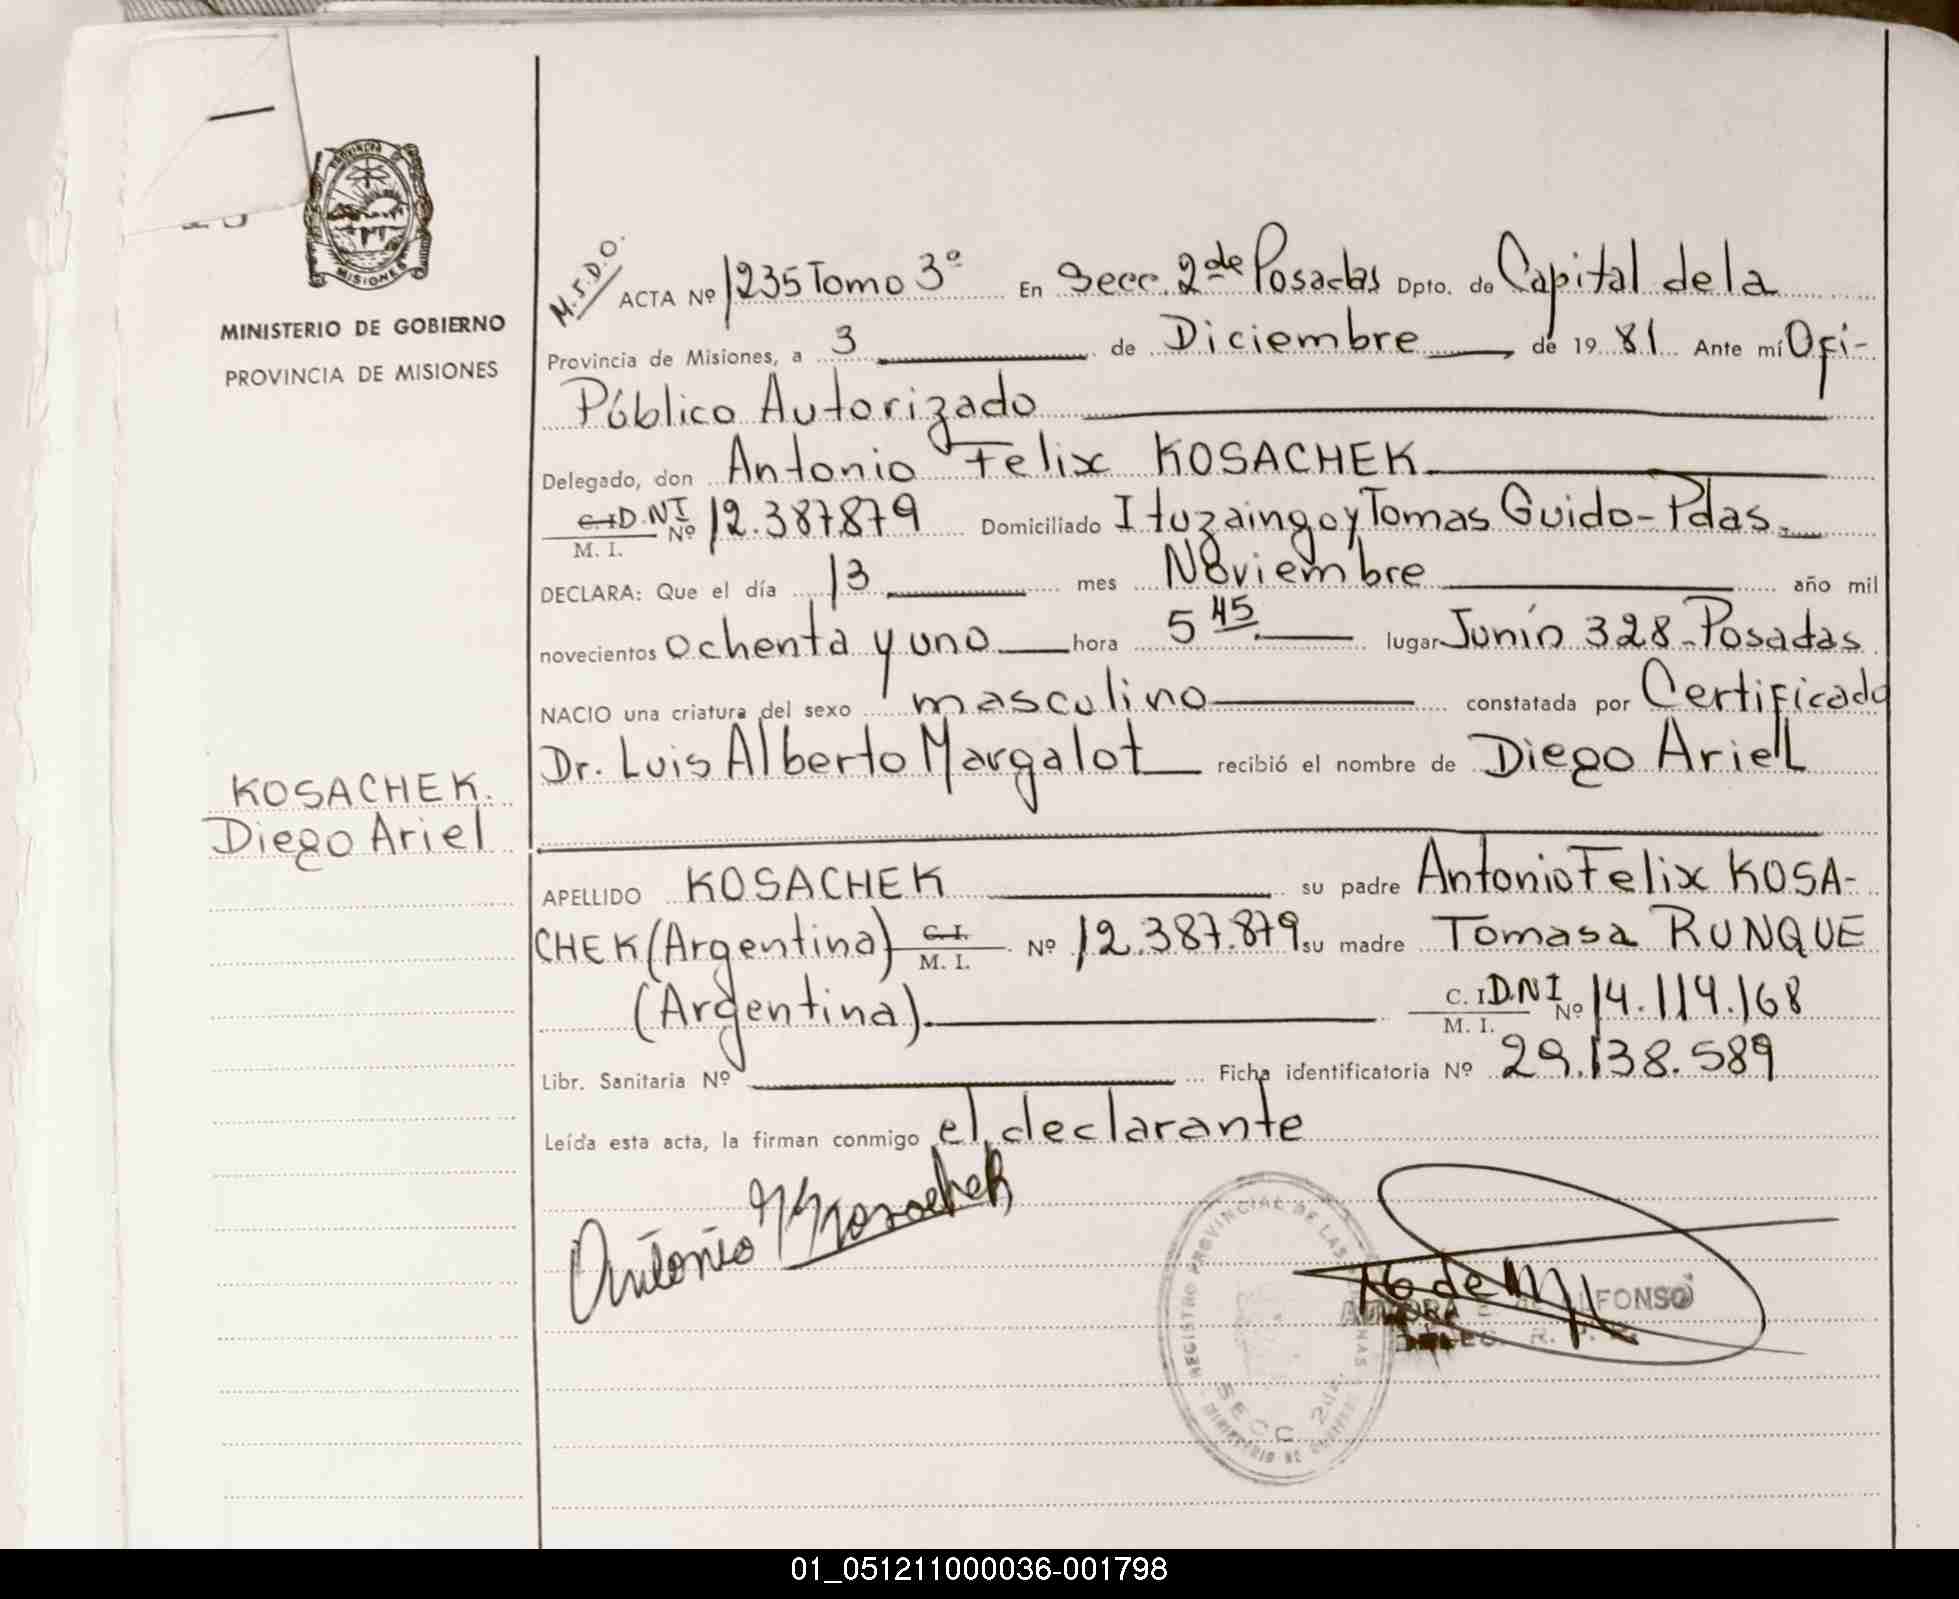 PROVINCIA
MISIONES
MINISTERIO DE GOBIERNO
PROVINCIA DE MISIONES
KOSACHEK.
Diego Ariel
M.S.D.O.
ACTA Nº 1235 Tomo 3º En Secc. 2ª de Posadas Dpto. de Capital de la
Provincia de Misiones, a 3 de Diciembre de 1981 Ante mí Ofi-
Público Autorizado
Delegado, don Antonio Felix KOSACHEK
C.I. D.N.I. M. I. Nº 12.387.879 Domiciliado Ituzaingo y Tomas Guido-Pdas.
DECLARA: Que el día 13 mes Noviembre año mil
novecientos ochenta y uno hora 5 45 lugar Junín 328-Posadas
NACIO una criatura del sexo masculino constatada por Certificado
Dr. Luis Alberto Margalot recibió el nombre de Diego Ariel
APELLIDO KOSACHEK su padre Antonio Felix KOSA-
CHEK (Argentina) C.I. M. I. Nº 12.387.879 su madre Tomasa RUNQUE
(Argentina) C. I. D.N.I. M. I. Nº 14.114.168
Libr. Sanitaria Nº Ficha identificatoria Nº 29.138.589
Leída esta acta, la firman conmigo el declarante
Antonio Kosachek
REGISTRO PROVINCIAL DE LAS PERSONAS
SECC 2da.
ALFONSO
01_051211000036-001798